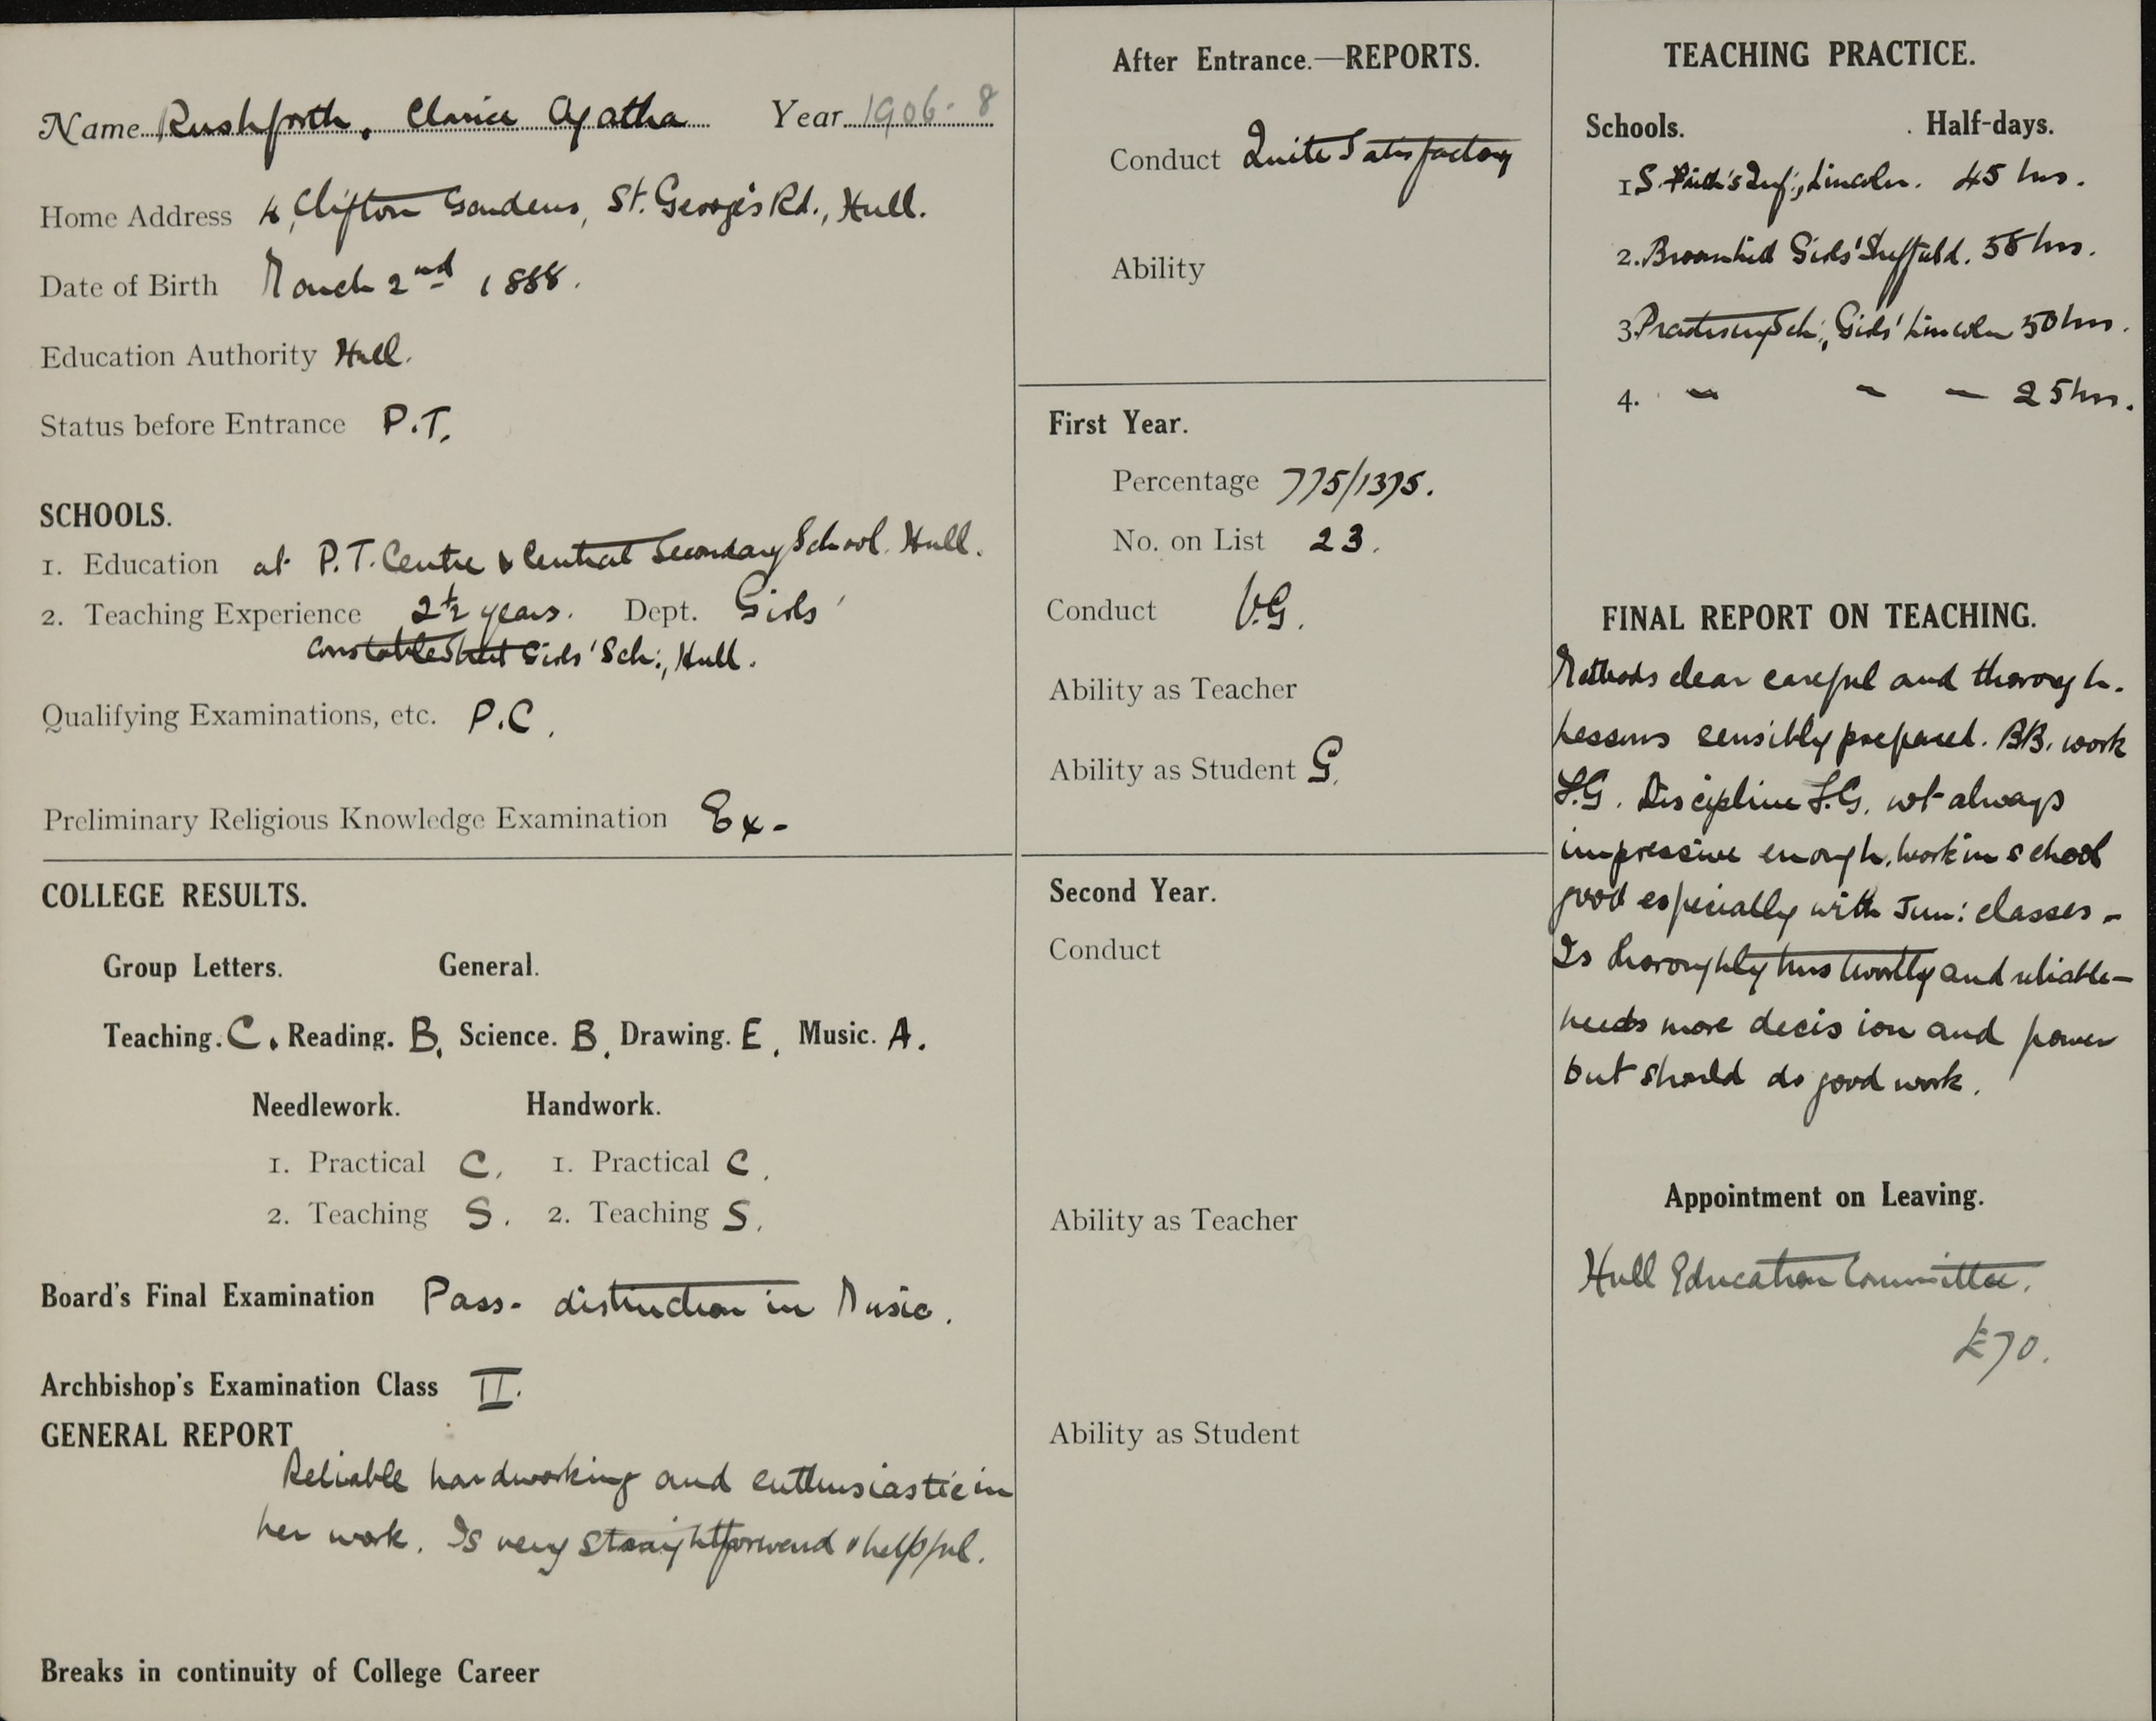 Name Rushforth, Clarice Agatha Year 1906-8
Home Address 4, Clifton Gardens, St. George's Rd., Hull.
Date of Birth March 2nd 1888.
Education Authority Hull.
Status before Entrance P.T.
SCHOOLS.
1. Education at P.T. Centre & Central Secondary School. Hull.
2. Teaching Experience 2½ years. Dept. Girls'
Constable Street Girls' Sch:, Hull.
Qualifying Examinations, etc. P.C.
Preliminary Religious Knowledge Examination Ex-
COLLEGE RESULTS.
Group Letters. General.
Teaching. C. Reading. B. Science. B. Drawing. E. Music. A.
Needlework. Handwork.
1. Practical C. 1. Practical C.
2. Teaching S. 2. Teaching S.
Board's Final Examination Pass- distinction in Music.
Archbishop's Examination Class II.
GENERAL REPORT
Reliable hardworking and enthusiastic in
her work. Is very straightforward & helpful.
Breaks in continuity of College Career
After Entrance.—REPORTS.
Conduct Quite Satisfactory
Ability
First Year.
Percentage 775/1375.
No. on List 23.
Conduct V.G.
Ability as Teacher
Ability as Student G.
Second Year.
Conduct
Ability as Teacher
Ability as Student
TEACHING PRACTICE.
Schools. Half-days.
1 S. Inf:, Lincoln. 45 hrs.
2. Broomhill Girls' Sheffield. 58 hrs.
3. Practising Sch:, Girls' Lincoln 50 hrs.
4. " " " 25 hrs.
FINAL REPORT ON TEACHING.
Methods clear careful and thorough.
Lessons sensibly prepared. BB. work
F.G. Discipline F.G. not always
impressive enough. Work in school
good especially with Jun: classes -
Is thoroughly trustworthy and reliable -
needs more decision and power
but should do good work.
Appointment on Leaving.
Hull Education Committee.
£70.